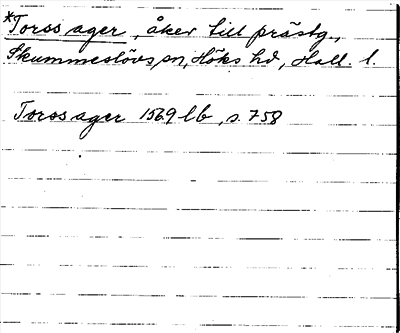 *Toros ager, åker till prästg.,
Skummeslövs sn, Höks hd, Hall. l.
Toros ager 1569 lb, s. 758